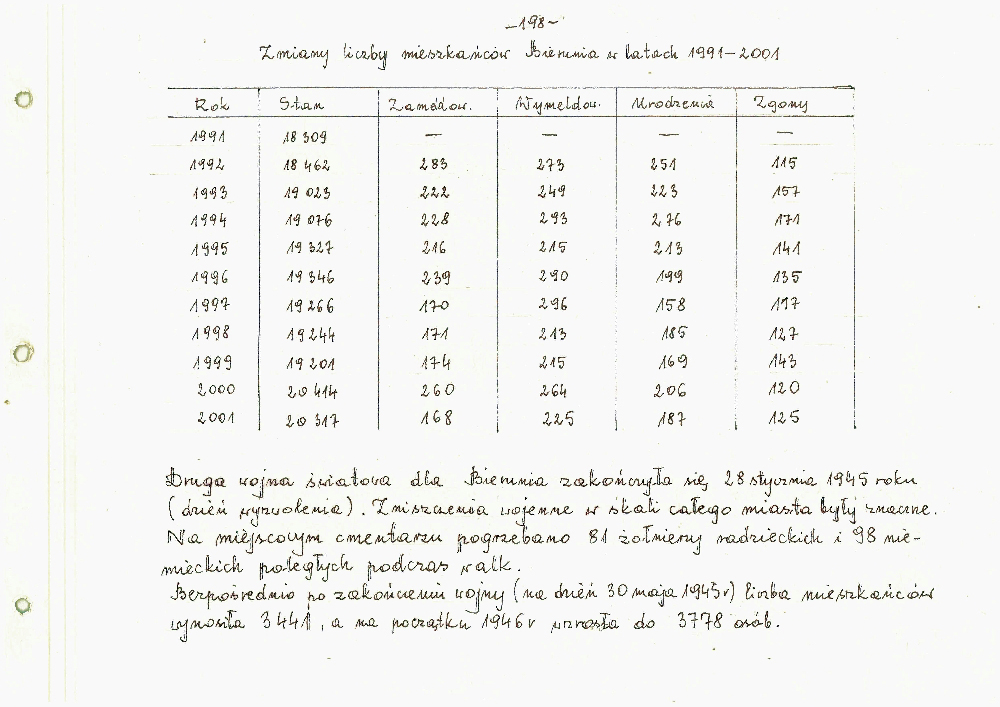 –198–
Zmiany liczby mieszkańców Bierunia w latach 1991–2001
Rok Stan Zameldow. Wymeldow. Urodzenia Zgony
1991 18 309 — — — —
1992 18 462 283 273 251 115
1993 19 023 222 249 223 157
1994 19 076 228 293 276 171
1995 19 327 216 215 213 141
1996 19 346 239 290 199 135
1997 19 266 170 296 158 117
1998 19 244 171 213 185 127
1999 19 201 174 215 169 143
2000 20 414 260 264 206 120
2001 20 317 168 225 187 125
Druga wojna światowa dla Bierunia zakończyła się 28 stycznia 1945 roku
(dzień wyzwolenia). Zniszczenia wojenne w skali całego miasta były znaczne.
Na miejscowym cmentarzu pogrzebano 81 żołnierzy radzieckich i 98 nie-
mieckich poległych podczas walk.
Bezpośrednio po zakończeniu wojny (na dzień 30 maja 1945r) liczba mieszkańców
wynosiła 3441, a na początku 1946r wzrosła do 3778 osób.